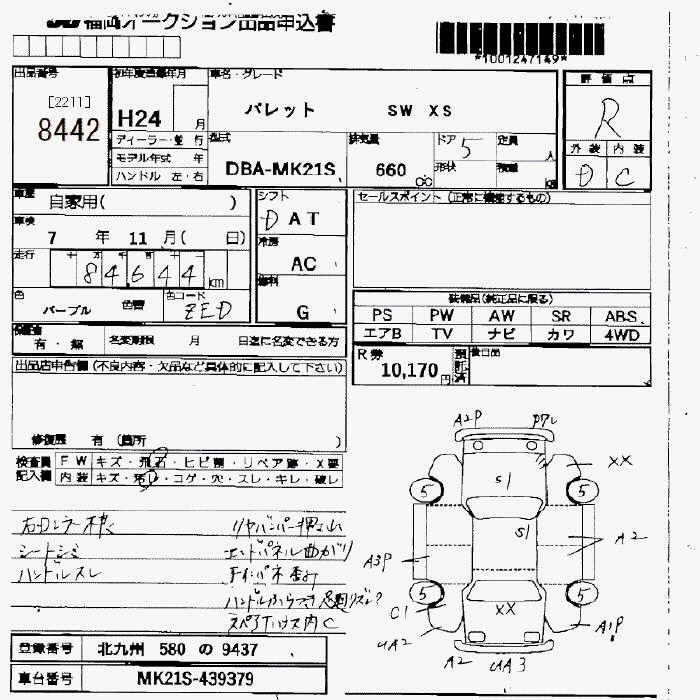 福岡オークション出品申込書
*1001247149*
出品番号
[2211]
8442
初年度登録年月
H24 月
ディーラー・並 行
モデル年式 年
ハンドル 左・右
車名・グレード
パレット SW XS
型式
DBA-MK21S
排気量
660 cc
ドア 5
形状
定員 人
積載 kg
評 価 点
R
外 装 内 装
D C
車歴
自家用( )
車検
7 年 11 月( 日)
走行
84644 km
色
パープル 色替
色コード
ZED
シフト
D AT
冷房
AC
燃料
G
セールスポイント (正常に機能するもの)
装備品(純正品に限る)
PS PW AW SR ABS
エアB TV ナビ カワ 4WD
有・無 名変期限 月 日迄に名変できる方
R券
10,170 円
預託済
後日品
出品店申告欄 (不良内容・欠品など具体的に記入して下さい)
修復歴 有 (箇所 )
検査員 FW キズ・飛石・ヒビ割・リペア跡・X要
記入欄 内装 キズ・汚レ・コゲ・穴・スレ・キレ・破レ
シートシミ
ハンドルスレ
リヤバンパー押
エンドパネル曲がり
スペアTハウス内C
A2P
XX
S1
5 5
S1
A2
A3P
5 5
C1
XX
UA2
A1P
A2 UA3
登録番号 北九州 580 の 9437
車台番号 MK21S-439379